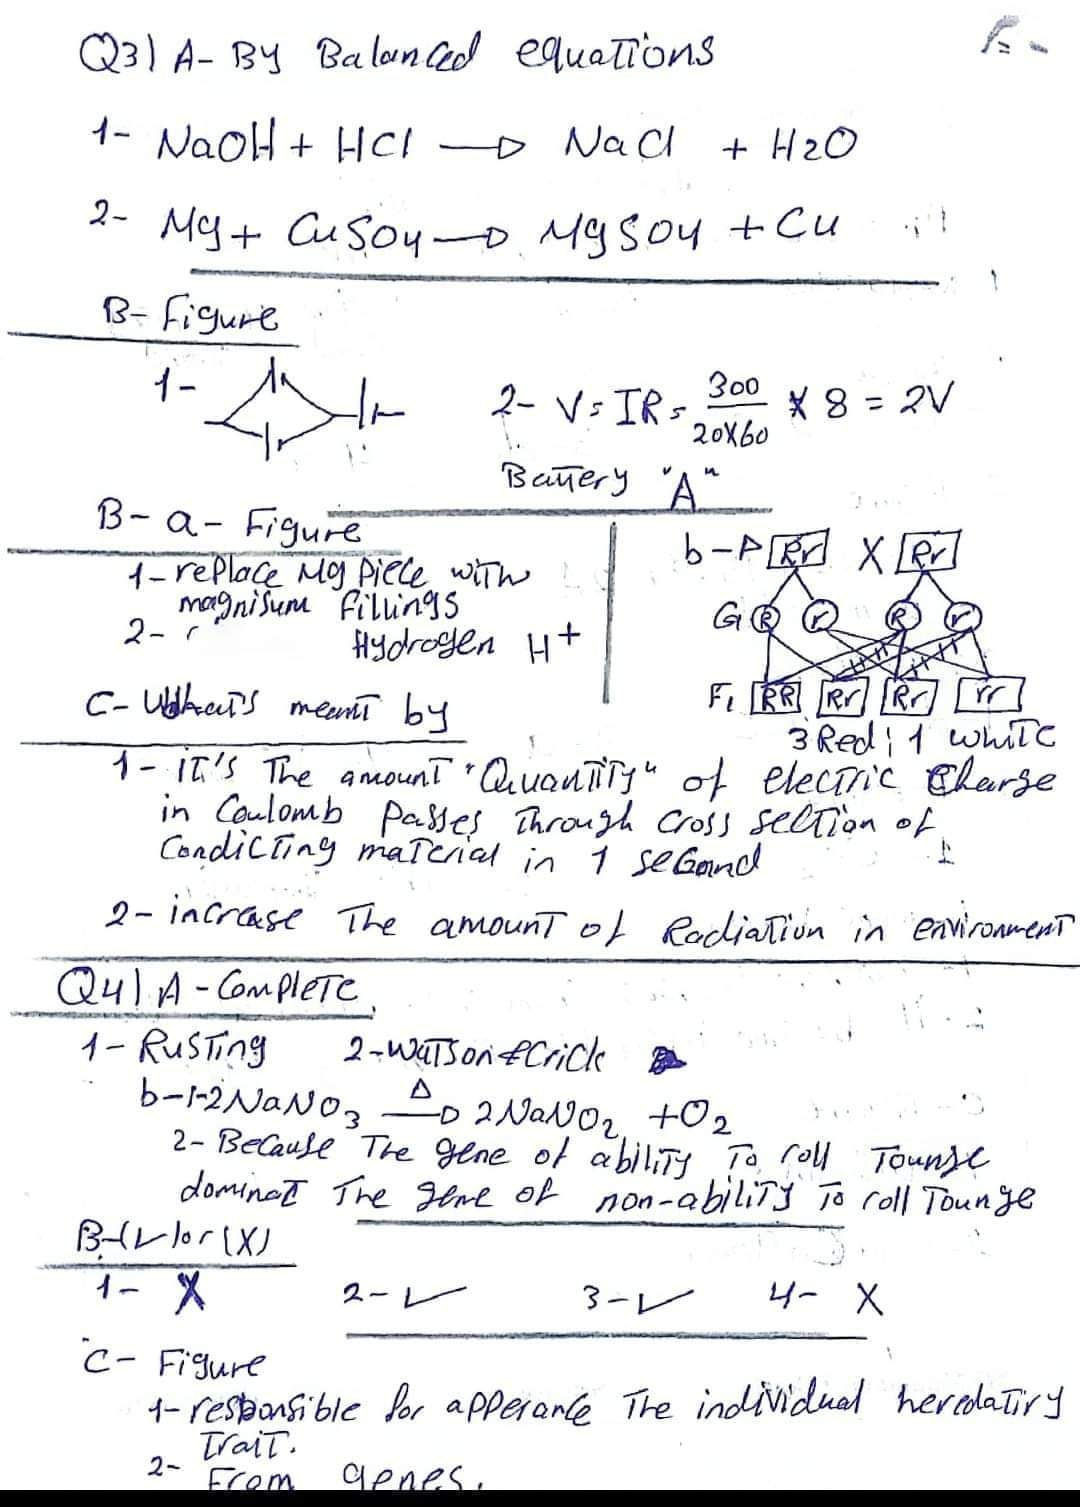 Q3) A- By Balanced equations
1- NaOH + HCl → NaCl + H2O
2- Mg + CuSO4 → MgSO4 + Cu
B- Figure
1-
2- V = IR = 300/20X60 X 8 = 2V
Battery "A"
B- a- Figure
1- replace Mg piece with
magnisum fillings
2-
Hydrogen H+
b- P Rr X Rr
G R r R r
F1 RR Rr Rr rr
3 Red ; 1 white
C- What's meant by
1- iT's The amount "Quantity" of electric Charge
in Coulomb Passes Through cross section of
Condicting material in 1 second
2- increase The amount of Radiation in environment
Q4) A- Complete
1- Rusting 2- Watson & Crick
b-1-2NaNO3 Δ→ 2NaNO2 + O2
2- Because The gene of ability To roll Tounge
dominat The gene of non-ability To roll Tounge
B-(✓) or (X)
1- X 2- ✓ 3- ✓ 4- X
C- Figure
1- responsible for apperance The individual heredatiry
Trait.
2- From genes.